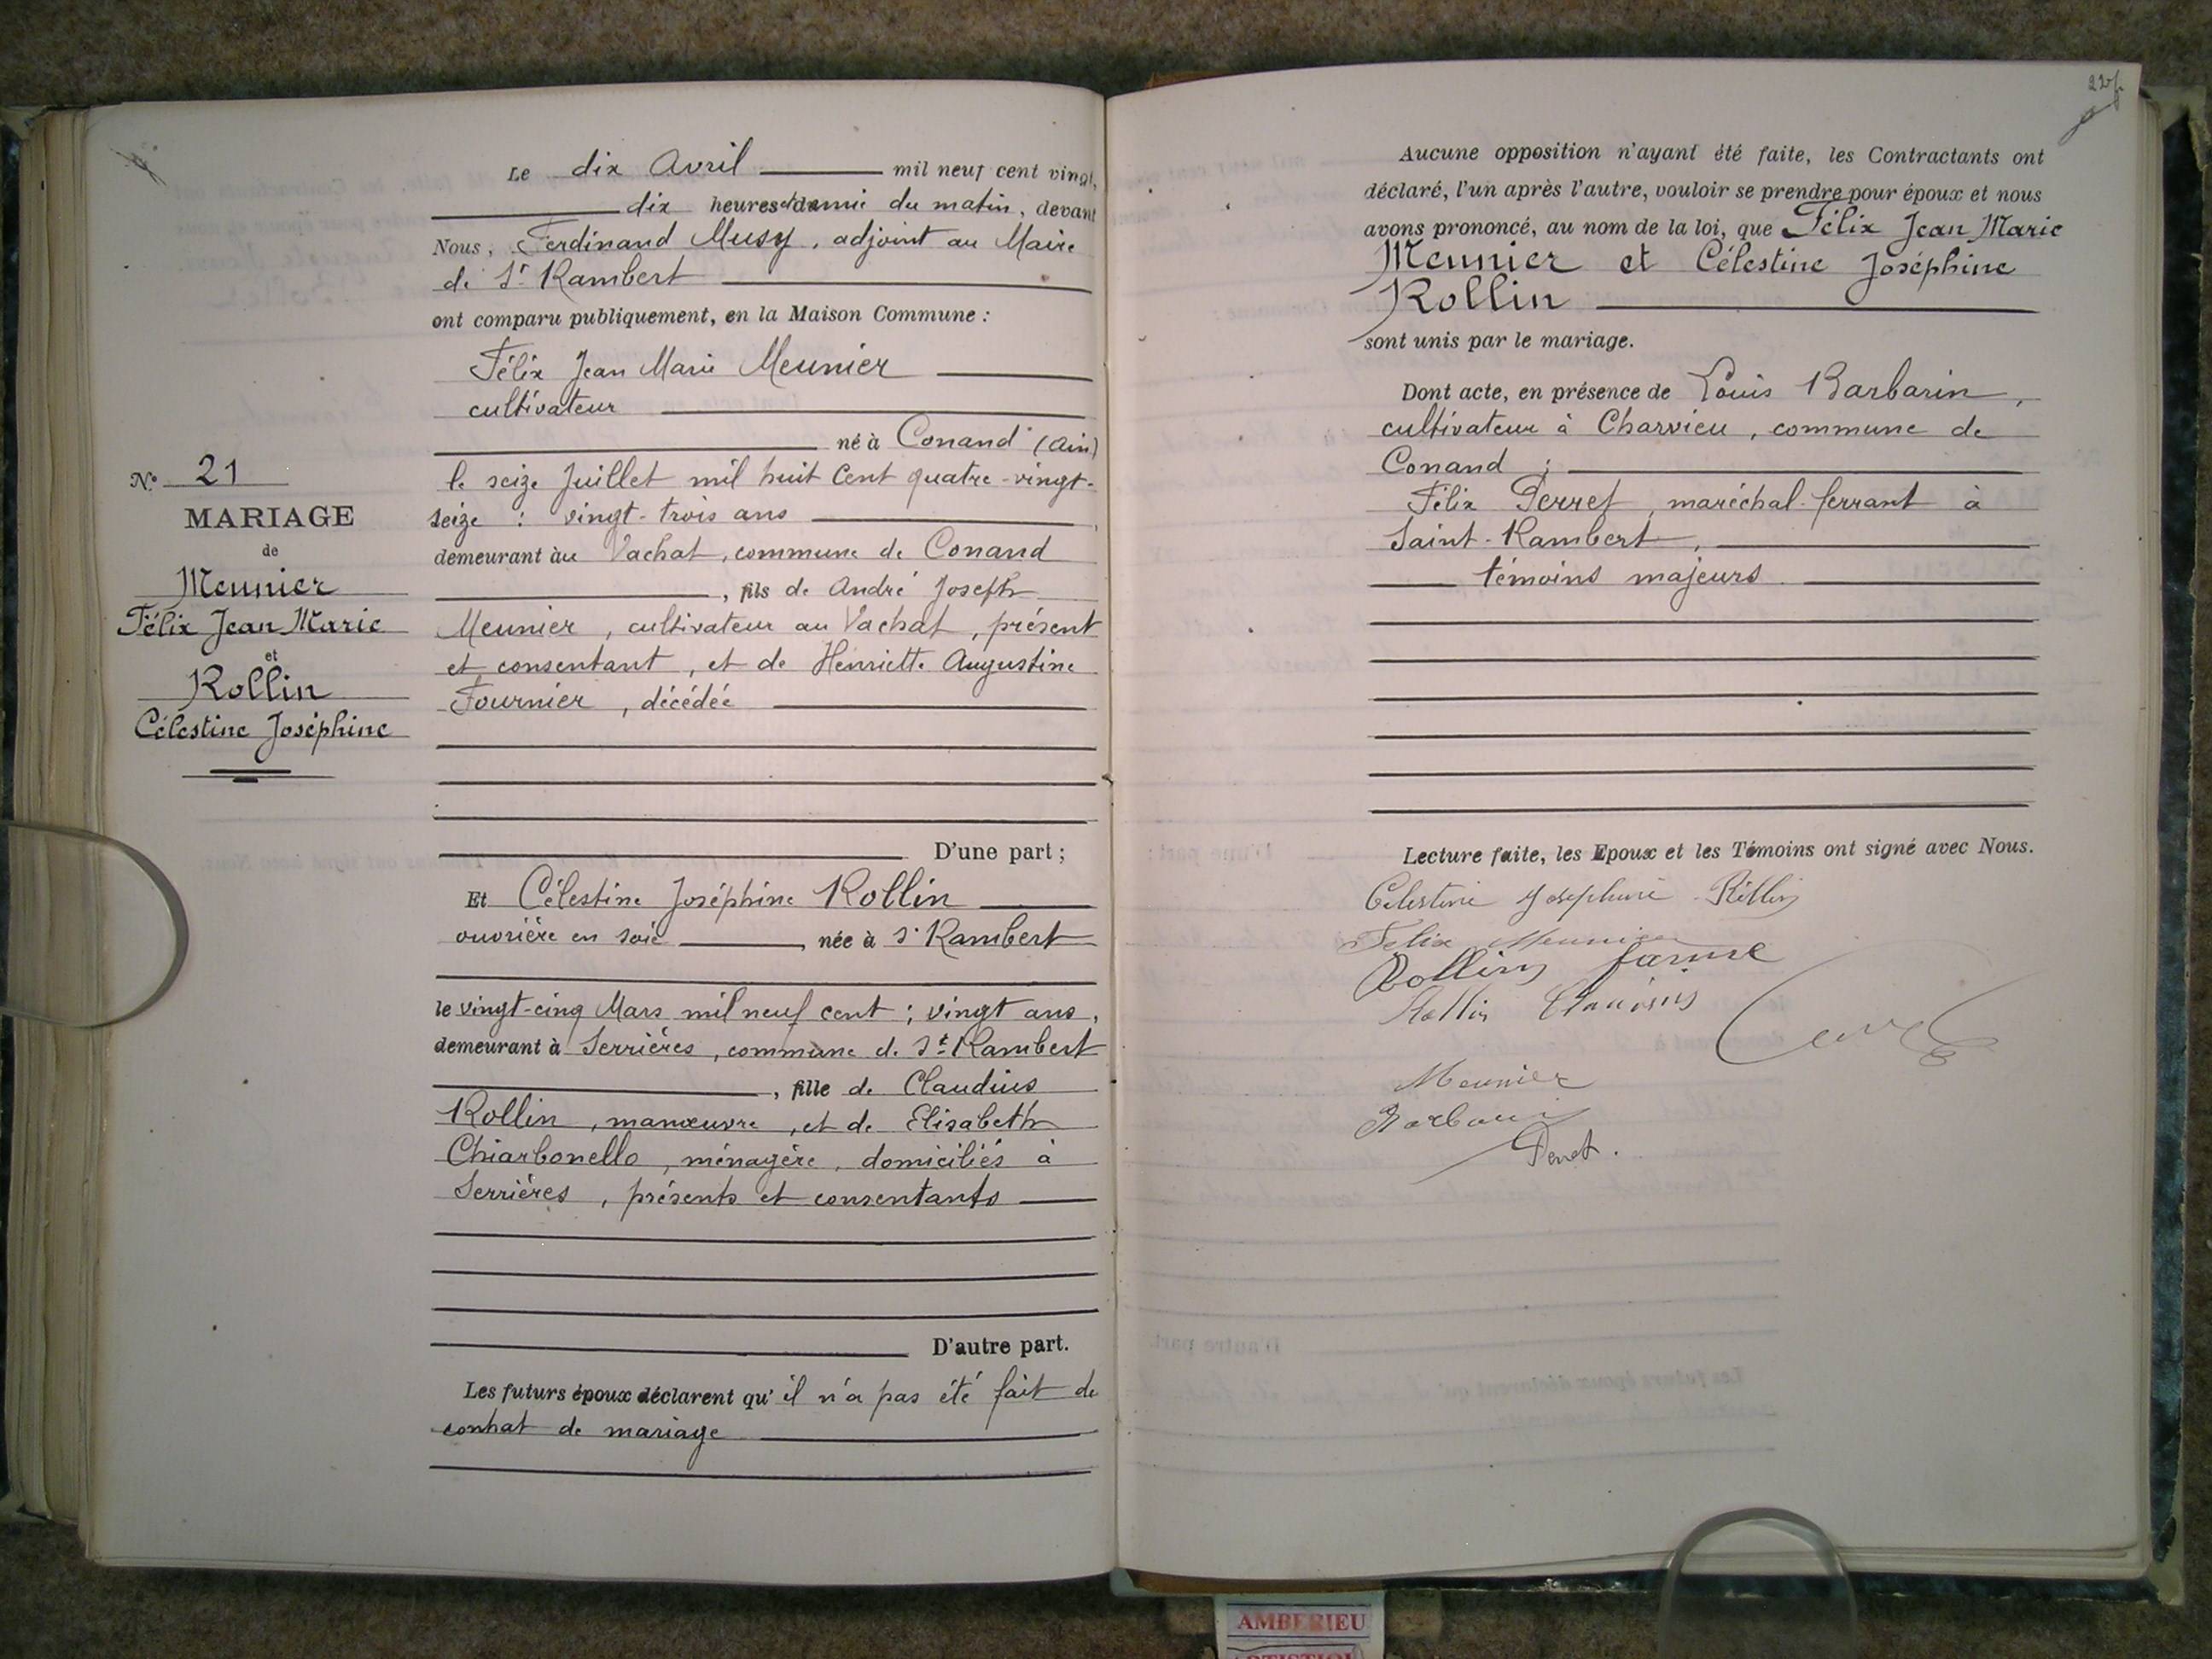 Le dix Avril mil neuf cent vingt,
dix heures et demie du matin, devant
Nous, Ferdinand Musy, adjoint au Maire
de St Rambert
ont comparu publiquement, en la Maison Commune :
Félix Jean Marie Meunier
cultivateur
né à Conand (Ain)
le seize Juillet mil huit Cent quatre-vingt-
seize : vingt-trois ans
demeurant àu Vachat, commune de Conand
, fils de André Joseph
Meunier, cultivateur au Vachat, présent
et consentant, et de Henriette Augustine
Fournier, décédée
D'une part ;
Et Célestine Joséphine Rollin
ouvrière en soie, née à St Rambert
le vingt-cinq Mars mil neuf cent ; vingt ans,
demeurant à Serrières, commune de St Rambert
, fille de Claudius
Rollin, manœuvre, et de Elisabeth
Chiarbonello, ménagère, domiciliés à
Serrières, présents et consentants
D'autre part.
Les futurs époux déclarent qu'il n'a pas été fait de
contrat de mariage
No 21
MARIAGE
de
Meunier
Félix Jean Marie
et
Rollin
Célestine Joséphine
Aucune opposition n'ayant été faite, les Contractants ont
déclaré, l'un après l'autre, vouloir se prendre pour époux et nous
avons prononcé, au nom de la loi, que Félix Jean Marie
Meunier et Célestine Joséphine
Rollin
sont unis par le mariage.
Dont acte, en présence de Louis Barbarin,
cultivateur à Charvieu, commune de
Conand ;
Félix Perret, maréchal-ferrant à
Saint-Rambert,
témoins majeurs
Lecture faite, les Epoux et les Témoins ont signé avec Nous.
Celestine Josephine Rollin
Felix Meunier
Rollin
Rollin Claudius
Meunier
Barbarin
Perret.
AMBERIEU